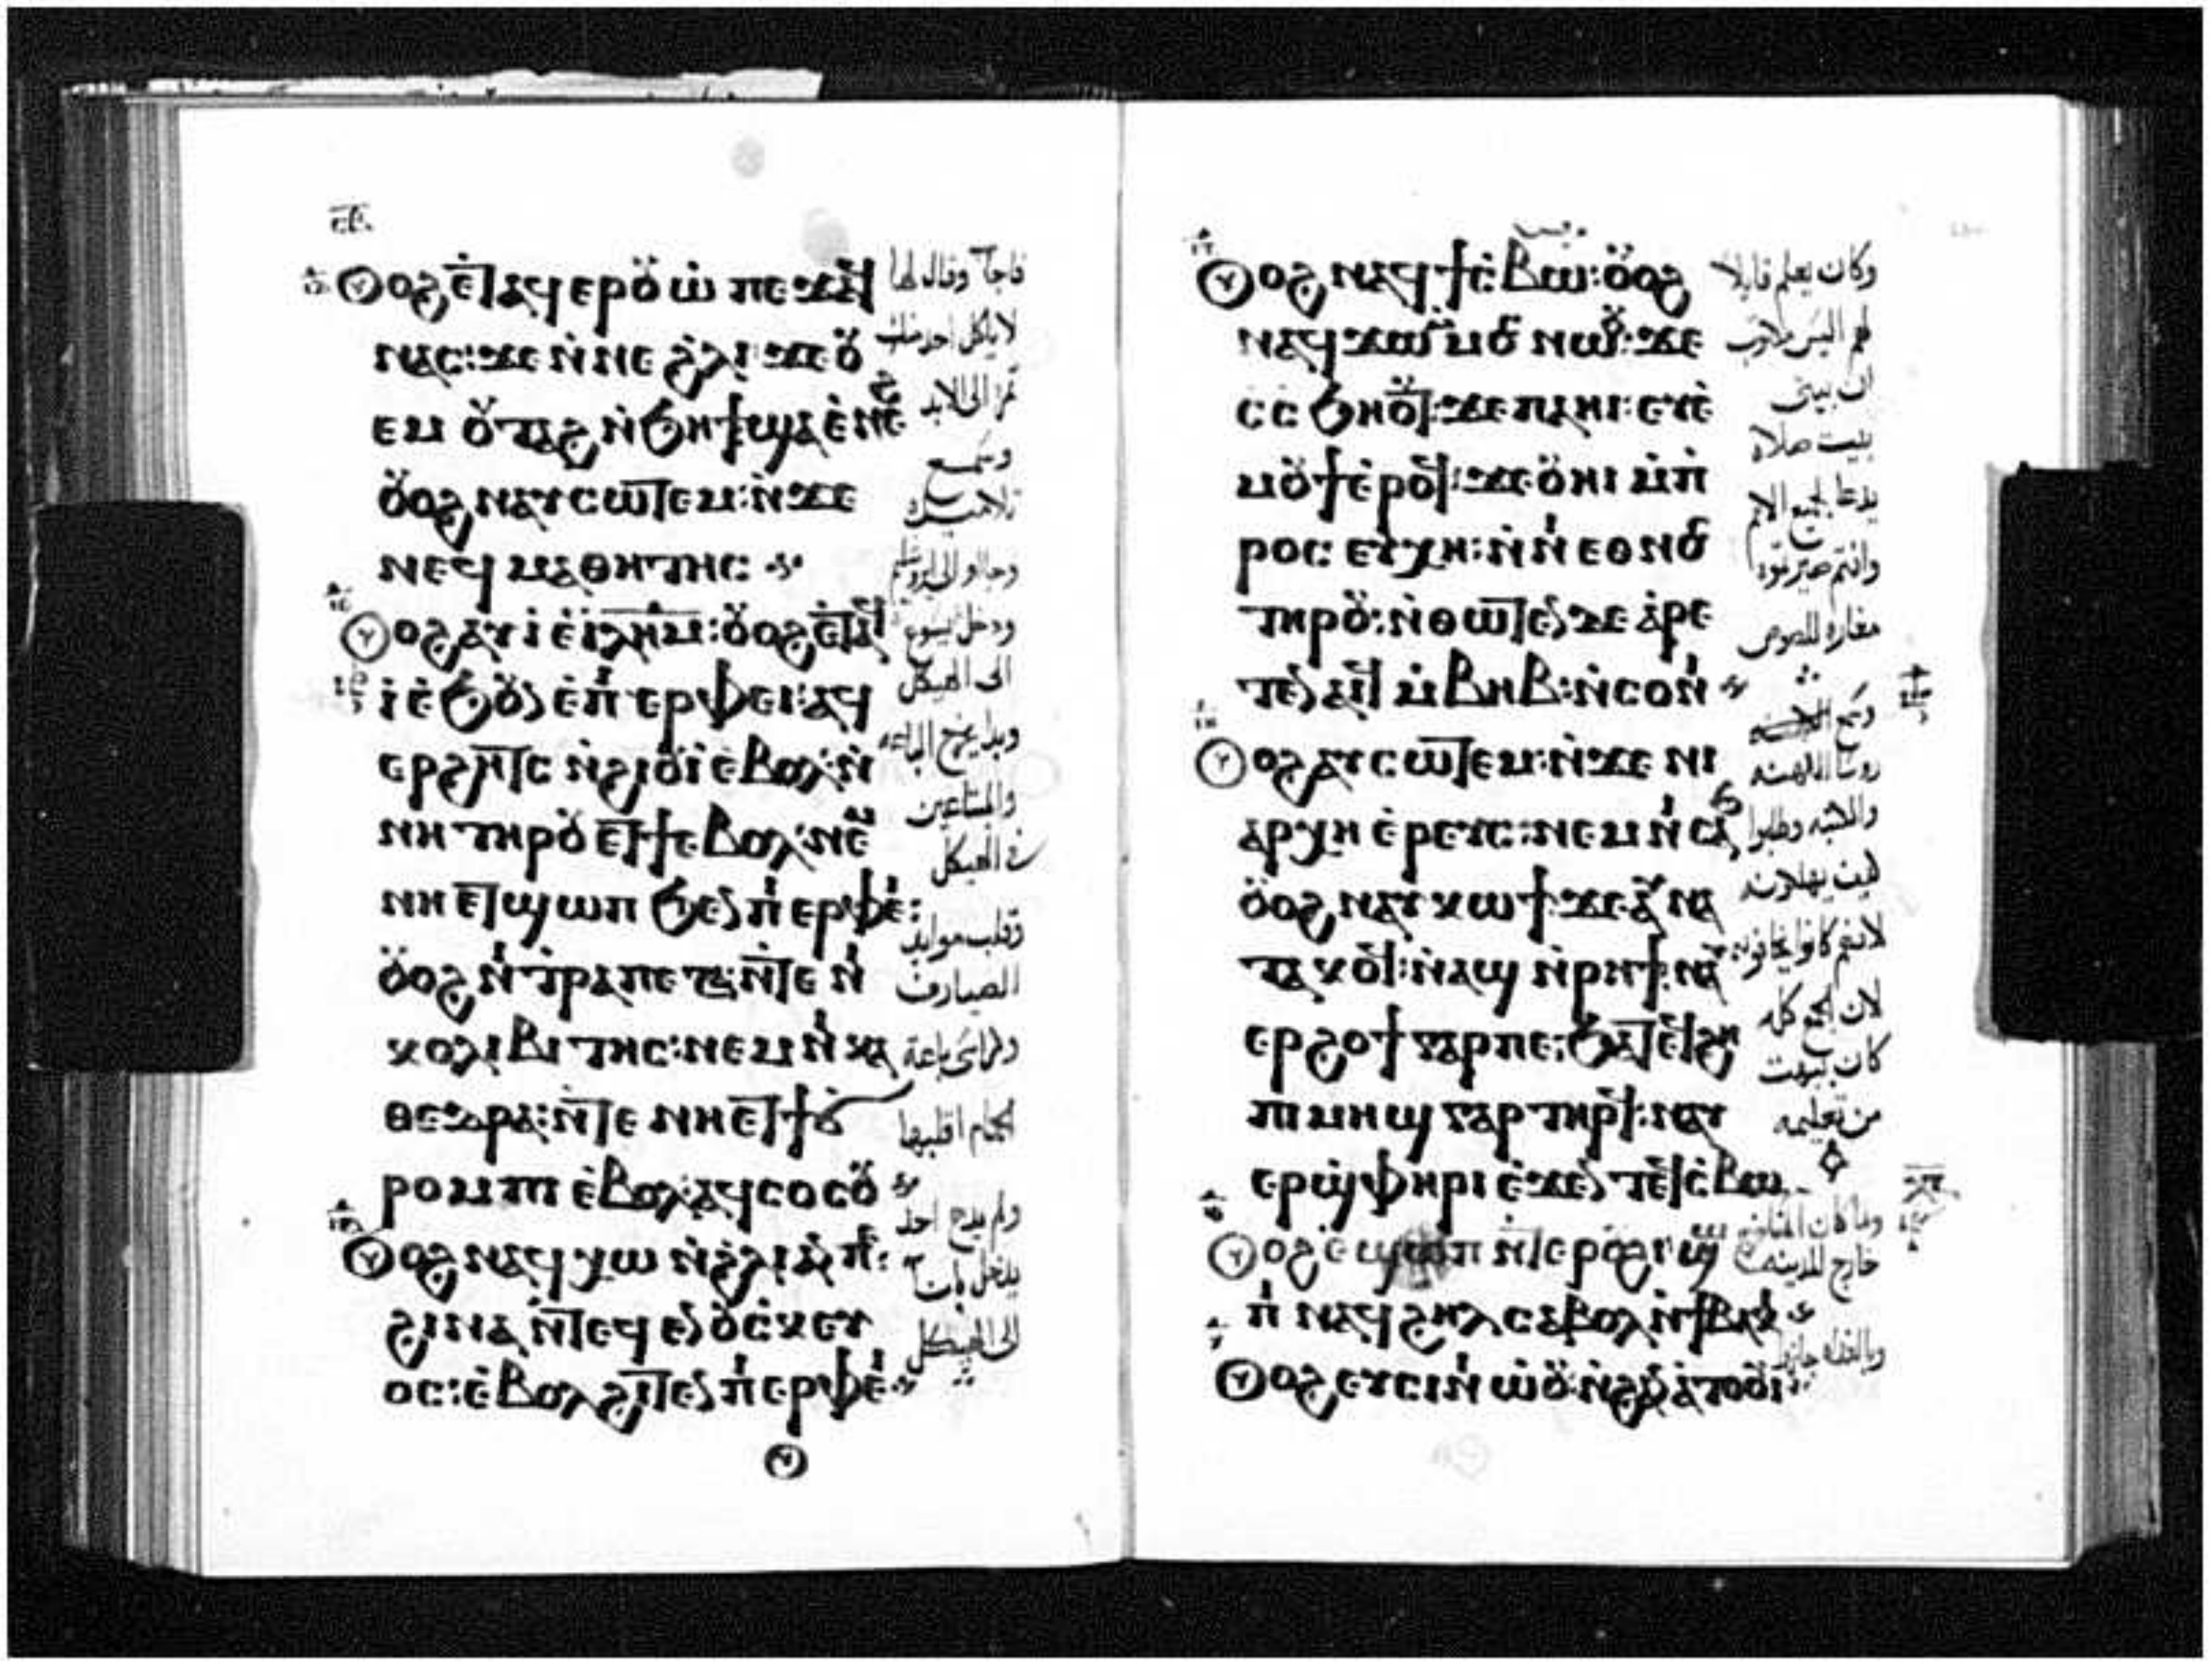 ⲟⲩⲟϩ ⲉⲧⲁϥⲉⲣⲟⲩⲱ ⲡⲉϫⲁϥ
ⲛⲁⲥ: ϫⲉ ⲛⲛⲉ ϩⲗⲓ ϫⲉ ⲟⲩ
ⲉⲙ ⲟⲩⲧⲁϩ ⲛϧⲏϯ ϣⲁ ⲉⲛⲉϩ
ⲟⲩⲟϩ ⲛⲁⲩⲥⲱⲧⲉⲙ: ⲛϫⲉ
ⲛⲉϥ ⲙⲁⲑⲏⲧⲏⲥ
ⲟⲩⲟϩ ⲁⲩⲓ ⲉⲓⲗⲏⲙ: ⲟⲩⲟϩ ⲉⲧⲁϥ
ⲓ ⲉϧⲟⲩⲛ ⲉⲡⲓ ⲉⲣⲫⲉⲓ: ⲁϥ
ⲉⲣϩⲏⲧⲥ ⲛϩⲓⲟⲩⲓ ⲉⲃⲟⲗ: ⲛ
ⲛⲏ ⲧⲏⲣⲟⲩ ⲉⲧϯ ⲉⲃⲟⲗ: ⲛⲉⲙ
ⲛⲏ ⲉⲧϣⲱⲡ ϧⲉⲛ ⲡⲓ ⲉⲣⲫⲉⲓ:
ⲟⲩⲟϩ ⲛⲓ ⲧⲣⲁⲡⲉⲍⲁ: ⲛⲧⲉ ⲛⲓ
ⲕⲟⲗⲓⲃⲓⲧⲏⲥ: ⲛⲉⲙ ⲛⲓ ⲕⲁ
ⲑⲉⲇⲣⲁ: ⲛⲧⲉ ⲛⲏ ⲉⲧϯ ϭ
ⲣⲟⲙⲡⲓ ⲉⲃⲟⲗ: ⲁϥⲥⲟⲥⲟⲩ
ⲟⲩⲟϩ ⲛⲁϥ ⲭⲱ ⲛϩⲗⲓ ⲁⲛ ⲡⲉ:
ϩⲓⲛⲁ ⲛⲧⲉϥ ⲉⲛ ⲟⲩⲥⲕⲉⲩ
ⲟⲥ: ⲉⲃⲟⲗ ϩⲓⲧⲉⲛ ⲡⲓ ⲉⲣⲫⲉⲓ
فاجاب وقال لها
لا ياكل احد منك
ثمرا الى الابد
وسمع
تلاميذه
وجاوا الى ايروشليم
ودخل يسوع
الى الهيكل
وبدا يخرج الباعه
والمبتاعين
في الهيكل
وقلب موايد
الصيارف
وكراسي باعة
الحمام اقلبها
ولم يدع احدا
يدخل
الى الهيكل
ⲟⲩⲟϩ ⲛⲁϥ ϯⲥⲃⲱ: ⲟⲩⲟϩ
ⲛⲁϥϫⲱ ⲙⲙⲟⲥ ⲛⲱⲟⲩ: ϫⲉ
ⲥⲥϧⲏⲟⲩⲧ: ϫⲉ ⲡⲁⲏⲓ: ⲉⲩⲉ
ⲙⲟⲩϯ ⲉⲣⲟϥ: ϫⲉ ⲟⲩⲏⲓ ⲙⲡ
ⲣⲟⲥⲉⲩⲭⲏ: ⲛⲛⲓ ⲉⲑⲛⲟⲥ
ⲧⲏⲣⲟⲩ: ⲛⲑⲱⲧⲉⲛ ⲇⲉ ⲁⲣⲉ
ⲧⲉⲛ ⲁⲓϥ ⲙⲃⲏⲃ: ⲛⲥⲟⲛⲓ
ⲟⲩⲟϩ ⲁⲩⲥⲱⲧⲉⲙ: ⲛϫⲉ ⲛⲓ
ⲁⲣⲭⲏ ⲉⲣⲉⲩⲥ: ⲛⲉⲙ ⲛⲓ ⲥⲁϧ
ⲟⲩⲟϩ ⲛⲁⲩ ⲕⲱϯ: ϫⲉ ⲁⲩⲛⲁ
ⲧⲁⲕⲟϥ: ⲛⲁϣ ⲛⲣⲏϯ: ⲛⲁⲩ
ⲉⲣϩⲟϯ ⲅⲁⲣ ⲡⲉ: ϧⲁ ⲧⲉϥϩⲏ
ⲡⲓ ⲙⲏϣ ⲅⲁⲣ ⲧⲏⲣϥ: ⲛⲁⲩ
ⲉⲣϣⲫⲏⲣⲓ ⲉϫⲉⲛ ⲧⲉϥⲥⲃⲱ
ⲟⲩⲟϩ ⲉϣⲱⲡ ⲛⲧⲉ ⲣⲟⲩϩⲓ ϣⲱ
ⲡⲓ ⲛⲁϥ ϩⲏⲗ ⲥⲁⲃⲟⲗ ⲛϯⲃⲁⲕⲓ
ⲟⲩⲟϩ ⲉⲩⲥⲓⲛⲓ ⲱⲟⲩ: ⲛϩⲁⲛⲁⲧⲟⲟⲩⲓ
وكان يعلم قايلا
لهم اليس مكتوب
ان بيتي
بيت صلاه
يدعا لجميع الامم
وانتم صيرتموه
مغاره للصوص
روسا الكهنه
والكتبه وطلبوا
كيف يهلكونه
لانهم كانوا يخافونه
لان الجمع كله
كان يبهت
من تعليمه
ولما كان المسا
خارج المدينه